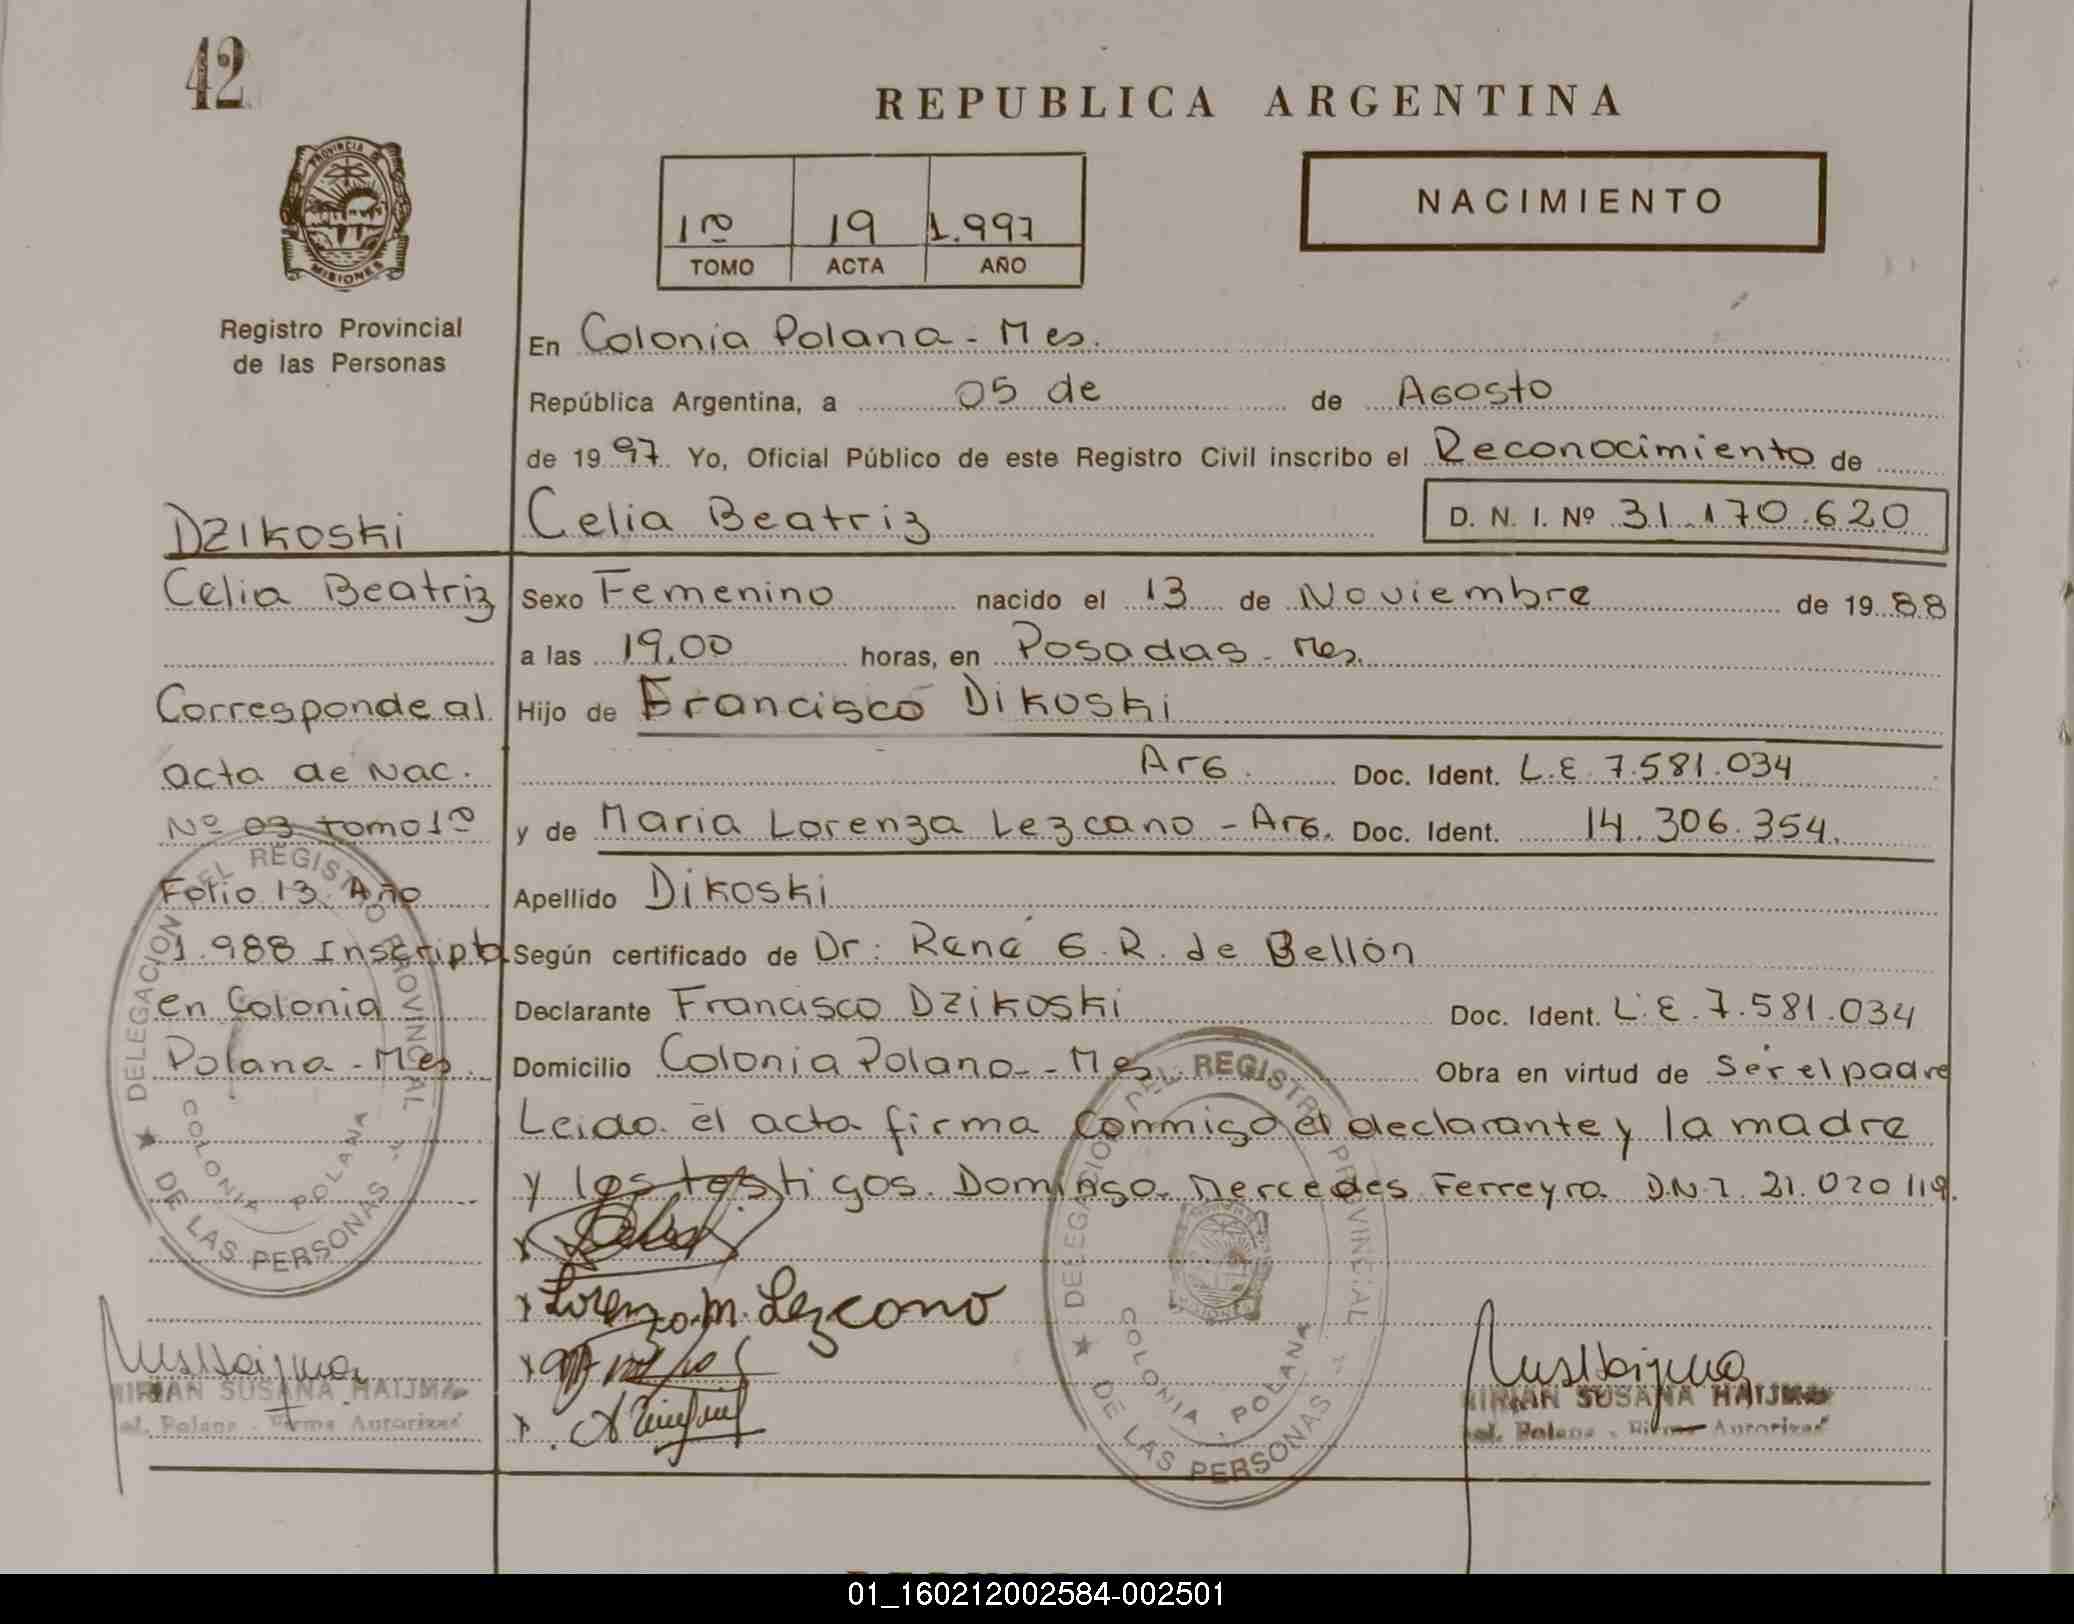 42
REPUBLICA ARGENTINA
NACIMIENTO
PROVINCIA DE
MISIONES
1ro 19 1.997
TOMO ACTA AÑO
Registro Provincial
de las Personas
En Colonia Polana - Mes.
República Argentina, a 05 de de Agosto
de 1997. Yo, Oficial Público de este Registro Civil inscribo el Reconocimiento de
DZIKOSKI
Celia Beatriz D. N. I. Nº 31.170.620
Celia Beatriz
Sexo Femenino nacido el 13 de Noviembre de 1988
a las 19,00 horas, en Posadas - Mes.
Corresponde al
Hijo de Francisco Dikoski
acta de Nac.
Arg. Doc. Ident. L.E 7.581.034
Nº 03 tomo 1ro
y de Maria Lorenza Lezcano - Arg. Doc. Ident. 14.306.354.
Folio 13. Año
Apellido Dikoski
1.988 Inscripto
Según certificado de Dr: René G. R. de Bellón
en Colonia
Declarante Francisco DZIKOSKI Doc. Ident. L.E. 7.581.034
Polana - Mes.
Domicilio Colonia Polana - Mes. Obra en virtud de Ser el padre
Leido el acta firma Conmigo el declarante y la madre
y los testigos. Domingo Mercedes Ferreyra D.N.I 21.020.119.
Lorenza M. Lezcano
DELEGACION DEL REGISTRO PROVINCIAL DE LAS PERSONAS
COLONIA POLANA
DELEGACION DEL REGISTRO PROVINCIAL DE LAS PERSONAS
COLONIA POLANA
MIRIAN SUSANA HAIJMA
Col. Polana - Firma Autorizad
MIRIAN SUSANA HAIJMA
Col. Polana - Firma Autorizad
01_160212002584-002501